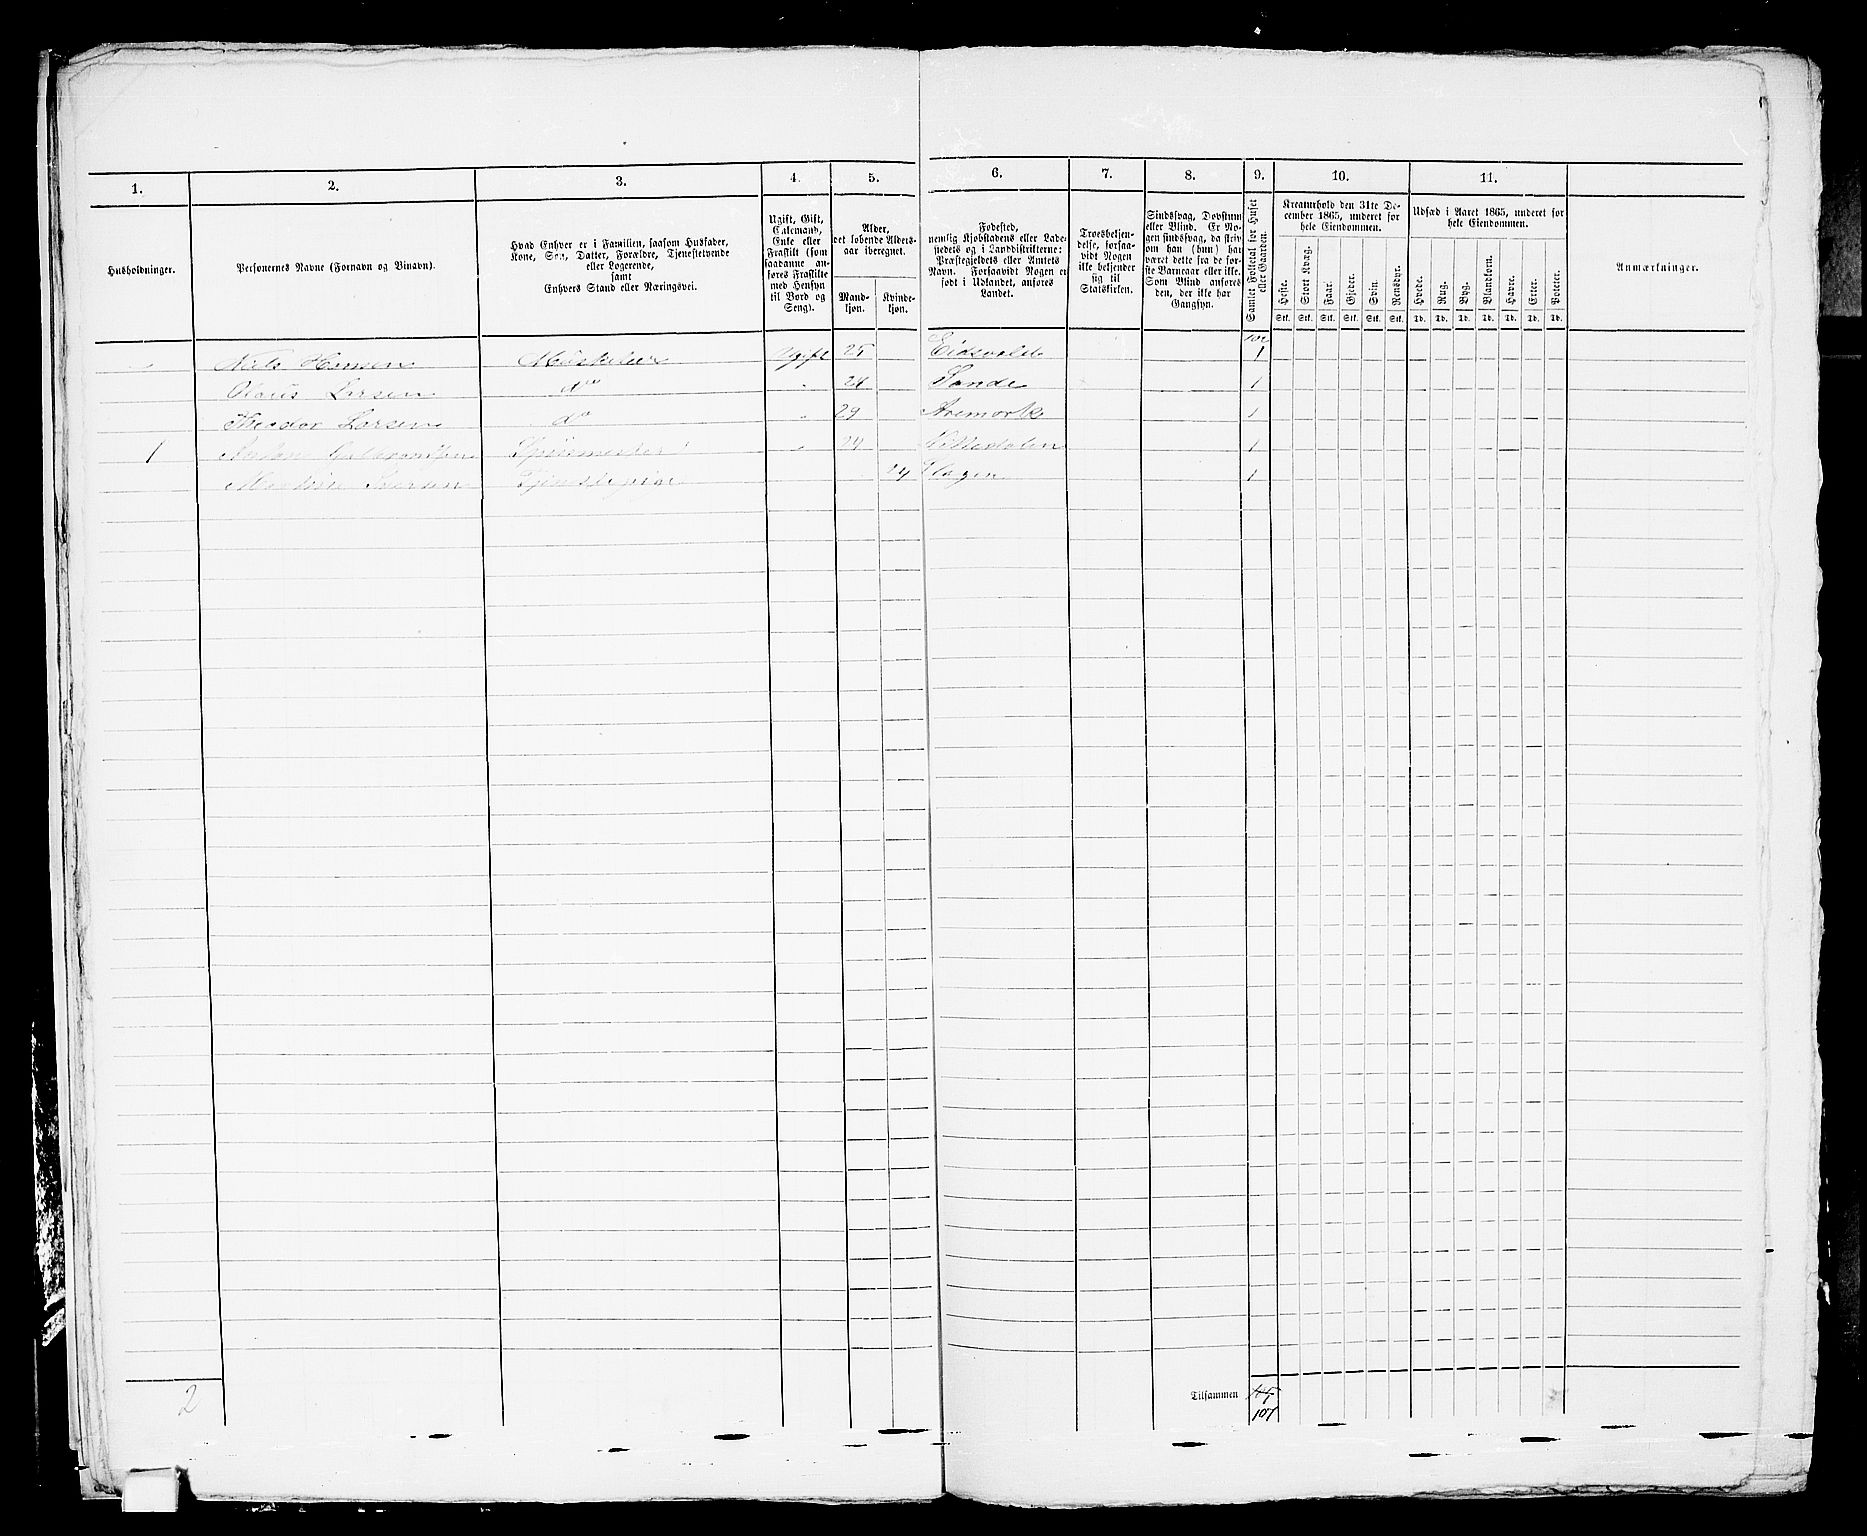 1. 2. 3. 4. 5. 6. 7. 8. 9. 10. 11.
Husholdninger.
Personernes Navne (Fornavn og Binavn).
Hvad Enhver er i Familien, saasom Husfader,
Kone, Søn, Datter, Forældre, Tjenestetyende
eller Logerende,
samt
Enhvers Stand eller Næringsvei.
Ugift, Gift,
Enkemand,
Enke eller
Fraskilt (som
saadanne an-
føres Fraskilte
med Hensyn
til Bord og
Seng).
Alder,
det løbende Alders-
aar iberegnet.
Mand-
kjøn.
Kvinde-
kjøn.
Fødested,
nemlig Kjøbstadens eller Lade-
stedets og i Landdistrikterne:
Præstegjeldets eller Amtets
Navn. Forsaavidt Nogen er
født i Udlandet, anføres
Landet.
Troesbekjen-
delse, forsaa-
vidt Nogen
ikke bekjender
sig til
Statskirken.
Sindssvag, Døvstum
eller Blind. Er No-
gen sindssvag, da skriv
om han (hun) har
været dette fra de før-
ste Barneaar eller ikke.
Som Blind anføres
den, der ikke har
Gangsyn.
Samlet Folketal for Huset
eller Gaarden.
Kreaturhold den 31te De-
cember 1865, unberet for
hele Eiendommen.
Heste. Stort Kvæg. Faar. Gjeder. Svin. Rensdyr.
Stk. Stk. Stk. Stk. Stk. Stk.
Udsæd i Aaret 1865, unberet for
hele Eiendommen.
Hvede. Rug. Byg. Blandkorn. Havre. Erter. Poteter.
Td. Td. Td. Td. Td. Td. Td.
Anmærkninger.
102
Niels Hansen Ugift 25 Eidsvold 1
Olaus Larsen do 24 Sande 1
Theodor Larsen do 29 Aremark 1
1 24 Nittedalen 1
24 Slagen 1
2
Tilsammen
107